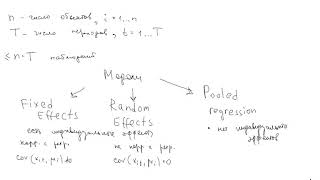 n - число объектов, i = 1...n
T - число периодов, t = 1...T
≤ n·T наблюдений
Модели
Fixed
Effects
есть индивидуальные эффекты
корр. с рег.
cov(x_it, μ_i) ≠ 0
Random
Effects
не корр с рег.
cov(x_it, μ_i) = 0
Pooled
regression
• нет индивидуальных
эффектов